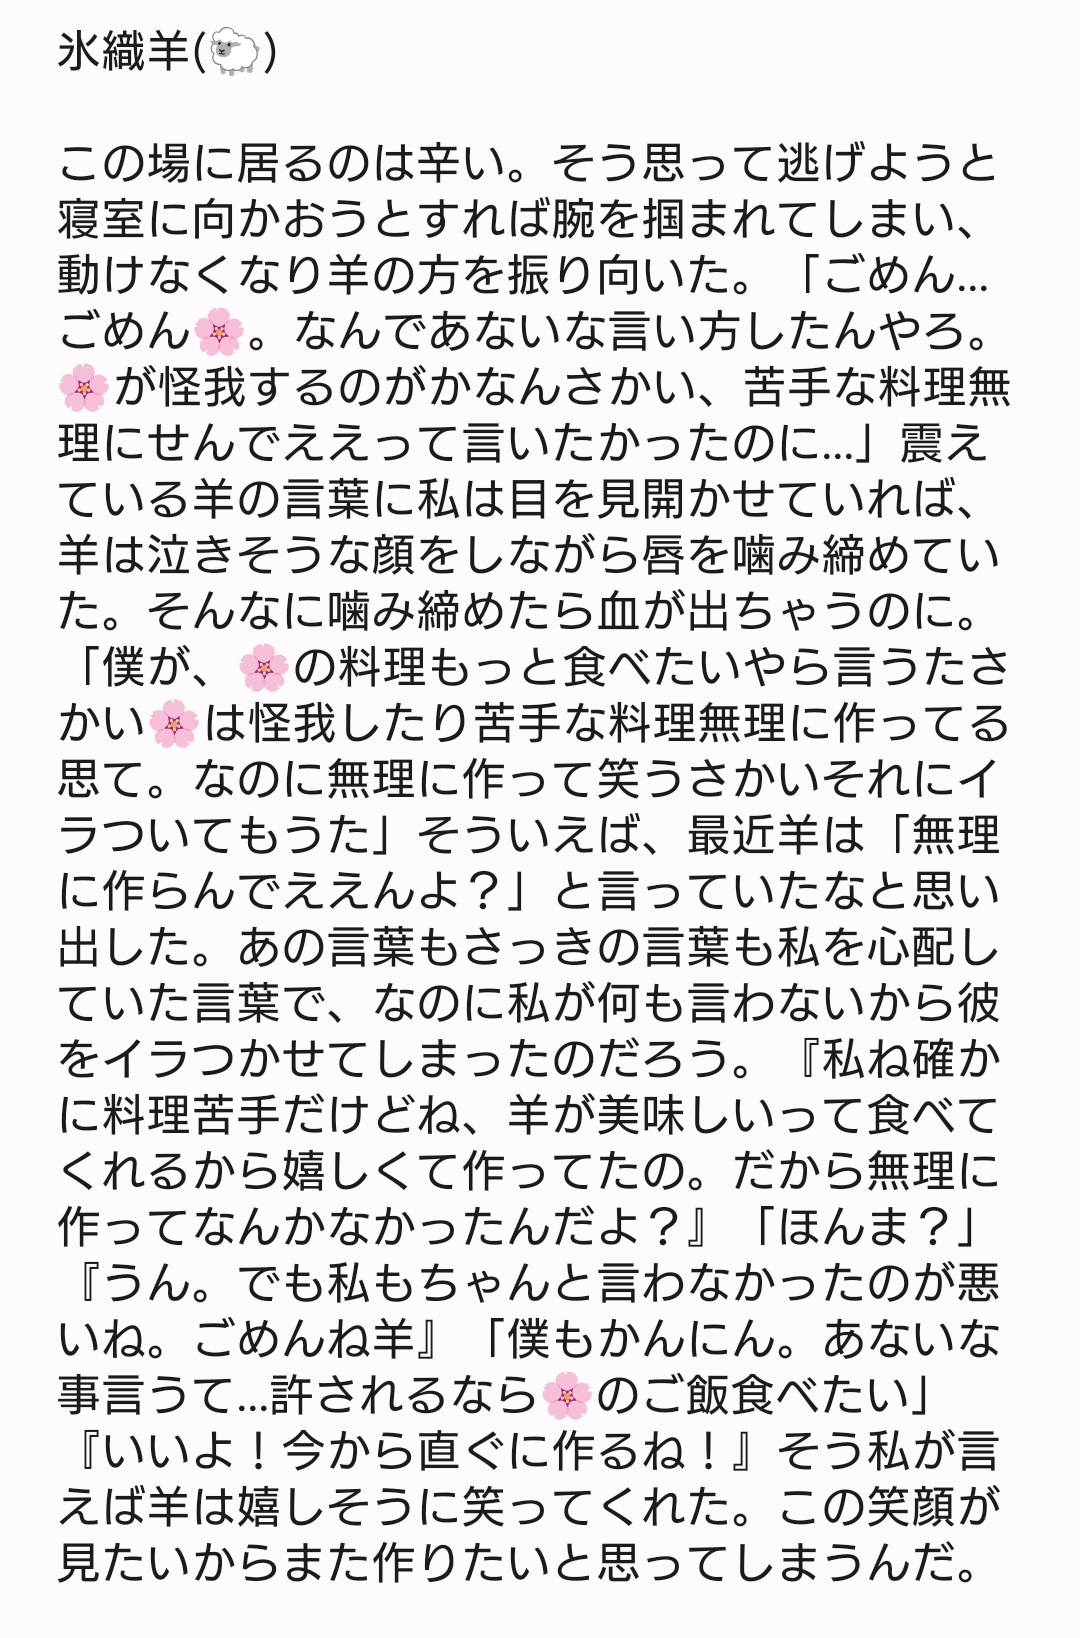 氷織羊(🐑)
この場に居るのは辛い。そう思って逃げようと
寝室に向かおうとすれば腕を掴まれてしまい、
動けなくなり羊の方を振り向いた。「ごめん...
ごめん🌸。なんであないな言い方したんやろ。
🌸が怪我するのがかなんさかい、苦手な料理無
理にせんでええって言いたかったのに...」震え
ている羊の言葉に私は目を見開かせていれば、
羊は泣きそうな顔をしながら唇を噛み締めてい
た。そんなに噛み締めたら血が出ちゃうのに。
「僕が、🌸の料理もっと食べたいやら言うたさ
かい🌸は怪我したり苦手な料理無理に作ってる
思て。なのに無理に作って笑うさかいそれにイ
ラついてもうた」そういえば、最近羊は「無理
に作らんでええんよ？」と言っていたなと思い
出した。あの言葉もさっきの言葉も私を心配し
ていた言葉で、なのに私が何も言わないから彼
をイラつかせてしまったのだろう。『私ね確か
に料理苦手だけどね、羊が美味しいって食べて
くれるから嬉しくて作ってたの。だから無理に
作ってなんかなかったんだよ？』「ほんま？」
『うん。でも私もちゃんと言わなかったのが悪
いね。ごめんね羊』「僕もかんにん。あないな
事言うて...許されるなら🌸のご飯食べたい」
『いいよ！今から直ぐに作るね！』そう私が言
えば羊は嬉しそうに笑ってくれた。この笑顔が
見たいからまた作りたいと思ってしまうんだ。